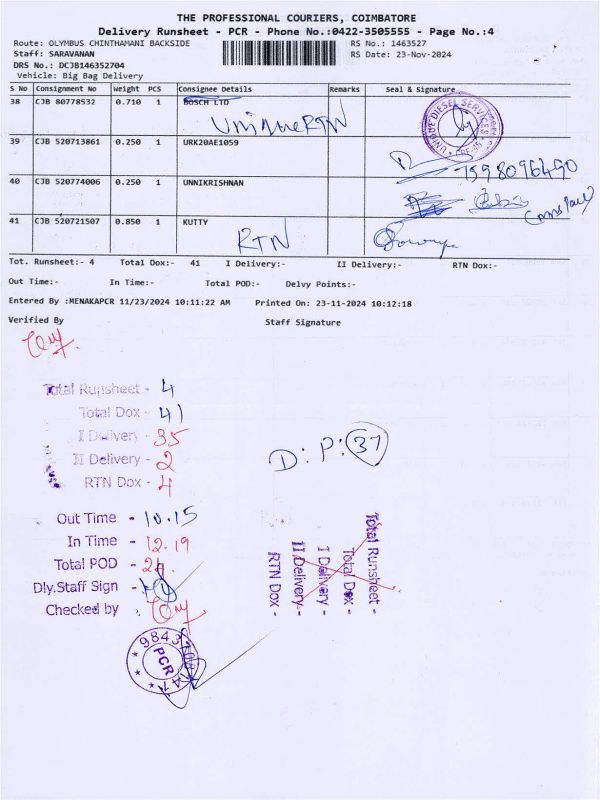 THE PROFESSIONAL COURIERS, COIMBATORE
Delivery Runsheet - PCR - Phone No.:0422-3505555 - Page No.:4
Route: OLYMBUS CHINTHAMANI BACKSIDE RS No.: 1463527
Staff: SARAVANAN RS Date: 23-Nov-2024
DRS No.: DCJB146352704
Vehicle: Big Bag Delivery
S No Consignment No Weight PCS Consignee Details Remarks Seal & Signature
38 CJB 80778532 0.710 1 BOSCH LTD
Unique RTN
UNIQUE DIESEL SERVICES
39 CJB 520713861 0.250 1 URK20AE1059
7598096490
40 CJB 520774006 0.250 1 UNNIKRISHNAN
41 CJB 520721507 0.850 1 KUTTY
RTN
Tot. Runsheet:- 4 Total Dox:- 41 I Delivery:- II Delivery:- RTN Dox:-
Out Time:- In Time:- Total POD:- Delvy Points:-
Entered By :MENAKAPCR 11/23/2024 10:11:22 AM Printed On: 23-11-2024 10:12:18
Verified By Staff Signature
Total Runsheet - 4
Total Dox - 41
I Delivery - 35
II Delivery - 2
RTN Dox - 4
D: P: 37
Out Time - 10.15
In Time - 12.19
Total POD -
Dly.Staff Sign -
Checked by
Total Runsheet -
Total Dox -
I Delivery -
II Delivery -
RTN Dox -
PCR